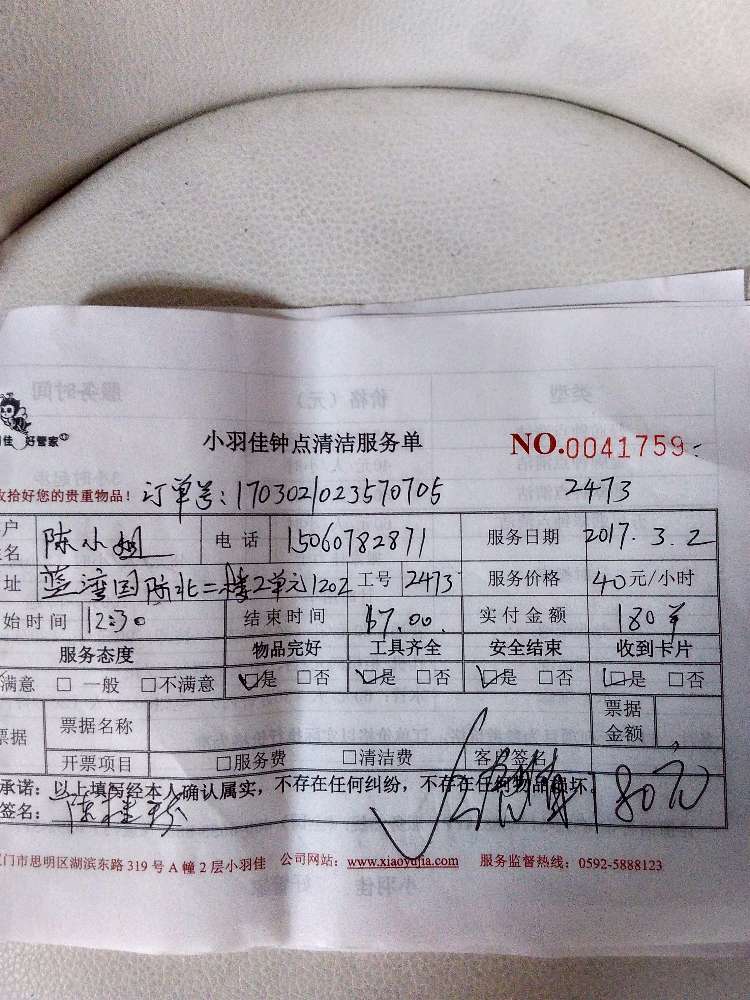 佳 好管家
小羽佳钟点清洁服务单 NO.0041759
收拾好您的贵重物品！ 订单号：170302102357 0705 2473
户名 陈小姐 电话 15060782871 服务日期 2017.3.2
址 蓝湾国际北二楼2单元1202 工号 2473 服务价格 40元/小时
始时间 12:30 结束时间 17.00. 实付金额 180
服务态度 物品完好 工具齐全 安全结束 收到卡片
满意 □ 一般 □不满意 □是 □否 □是 □否 □是 □否 □是 □否
票据 票据名称 票据金额
开票项目 □服务费 □清洁费 客户签名
承诺：以上填写经本人确认属实，不存在任何纠纷，不存在任何物品损坏。 180元
签名：
门市思明区湖滨东路 319 号 A 幢 2 层小羽佳 公司网站：www.xiaoyujia.com 服务监督热线：0592-5888123